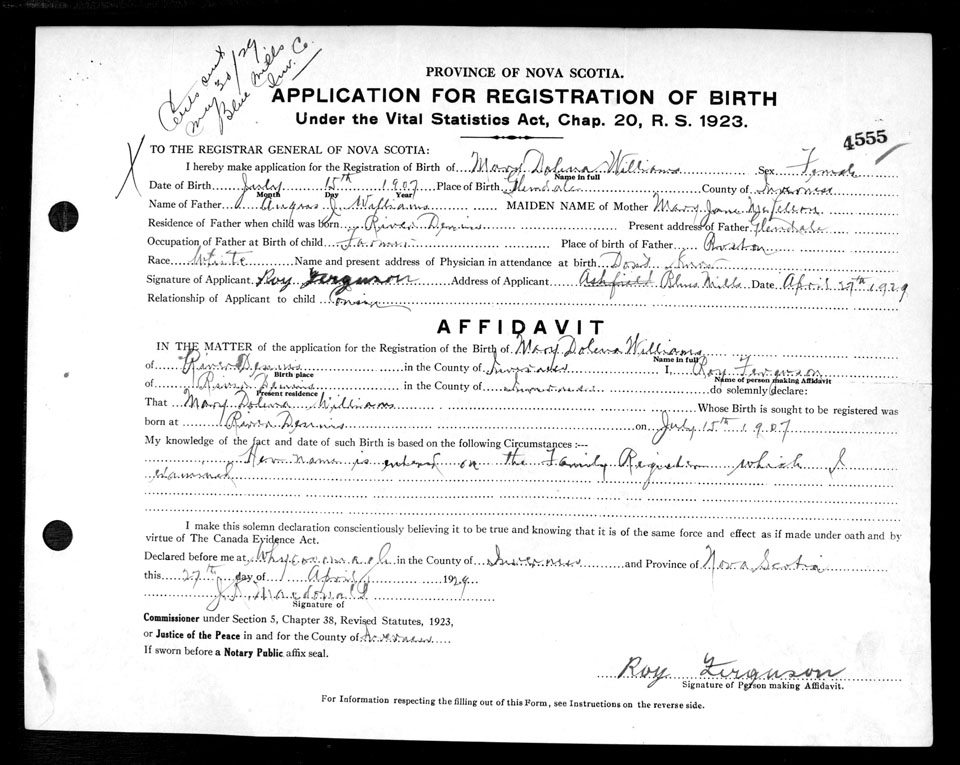 Certs sent
May 30/29
Blue Mills
Inv. Co.
PROVINCE OF NOVA SCOTIA.
APPLICATION FOR REGISTRATION OF BIRTH
Under the Vital Statistics Act, Chap. 20, R. S. 1923.
4555
X
TO THE REGISTRAR GENERAL OF NOVA SCOTIA:
I hereby make application for the Registration of Birth of Mary Dolena Williams Sex Female
Name in full
Date of Birth July 15th 1907 Place of Birth Glendale County of Inverness
Month Day Year
Name of Father Angus J. Williams MAIDEN NAME of Mother Mary Jane
Residence of Father when child was born River Dennis Present address of Father Glendale
Occupation of Father at Birth of child Farmer Place of birth of Father Boston
Race White Name and present address of Physician in attendance at birth Dont know
Signature of Applicant Roy Ferguson Address of Applicant Ashfield Blues Mills Date April 27th 1929
Relationship of Applicant to child Cousin
AFFIDAVIT
IN THE MATTER of the application for the Registration of the Birth of Mary Dolena Williams
Name in full
of River Dennis in the County of Inverness I, Roy Ferguson
Birth place Name of person making Affidavit
of River Dennis in the County of Inverness do solemnly declare:
Present residence
That Mary Dolena Williams Whose Birth is sought to be registered was
born at River Dennis on July 15th 1907
My knowledge of the fact and date of such Birth is based on the following Circumstances :--
Her name is entered on the Family Register which I
examined
I make this solemn declaration conscientiously believing it to be true and knowing that it is of the same force and effect as if made under oath and by
virtue of The Canada Evidence Act.
Declared before me at Whycocomagh in the County of Inverness and Province of Nova Scotia
this 27th day of April 1929
Macdonald
Signature of
Commissioner under Section 5, Chapter 38, Revised Statutes, 1923,
or Justice of the Peace in and for the County of Inverness
If sworn before a Notary Public affix seal.
Roy Ferguson
Signature of Person making Affidavit.
For Information respecting the filling out of this Form, see Instructions on the reverse side.